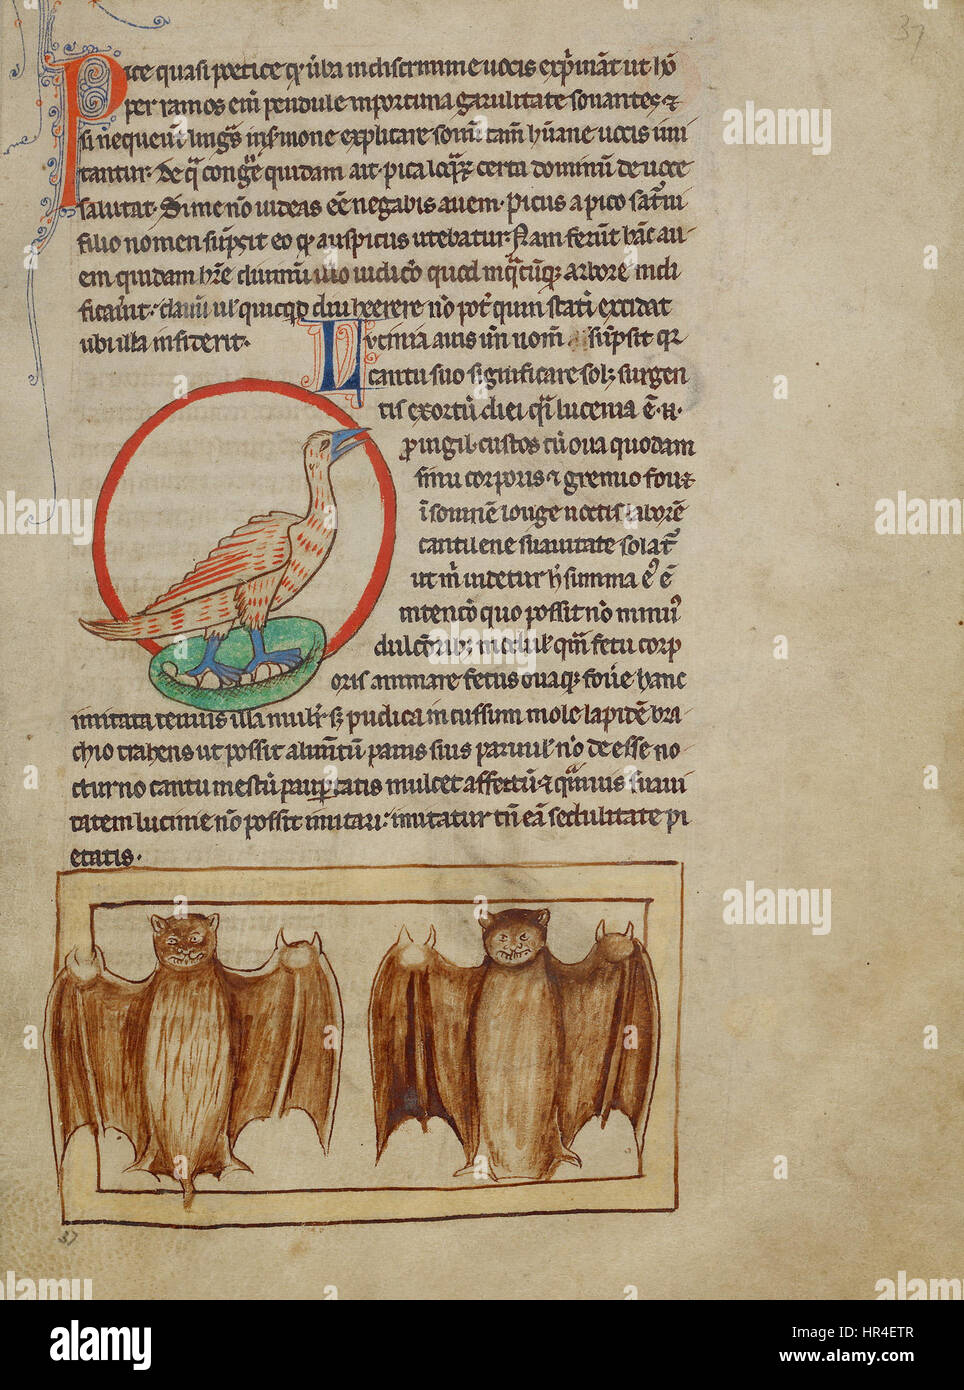 37
Pice quasi poetice qr̉ u̾ba in discrimine uocis exp̾mãt ut hõ
per ramos em̃ pendule inportuna garulitate sonantes ⁊
si neq̃unt linguas in s̾mone explicare sonũ tam̃ hu̾ane uocis imi
tantur. de q̃ congrue quidam ait. pica loquax certa dominũ de uoce
salutat. Si me nõ uideas eẽ negabis auem. Picus a pico sat̾ni
filio nomen sũpsit eo qr̉ auspicus utebatur. Nam ferũt hãc au
em quidam hr̃e diuinũ illo iudicio quod in quacũq arbore nidi
ficauit. clauũ ul̃ quicqd diu herere nõ pot̾ quin stati excidat
ubi illa insiderit.
Lucinia auis in̾ nom̃ sũpsit qr̉
cantu suo significare solꝫ surgen
tis exortũ diei quasi lucenia ẽ .n.
peruigil custos cũ oua quodam
sinu corporis ⁊ gremio fouet
isomnẽ longe noctis laborẽ
cantilene suauitate solat̾
ut m̃ uidetur h̾ summa ei̾ ẽ
intenciõ quo possit nõ minus
dulcorib; modulis quam fetu corp
oris animare fetus ouaq; foue hanc
imitata tenuis illa mulier sꝫ pudica incussum mole lapidem bra
chio trahens ut possit alim̃tũ panis suis paruulis nõ deesse no
cturno cantu mestũ paupertatis mulcet affectũ ⁊ q̃muis suaui
tatem lucinie nõ possit imitari. imitatur tñ eã sedulitate pi
etatis.
37
alamy
Image ID: HR4ETR
www.alamy.com